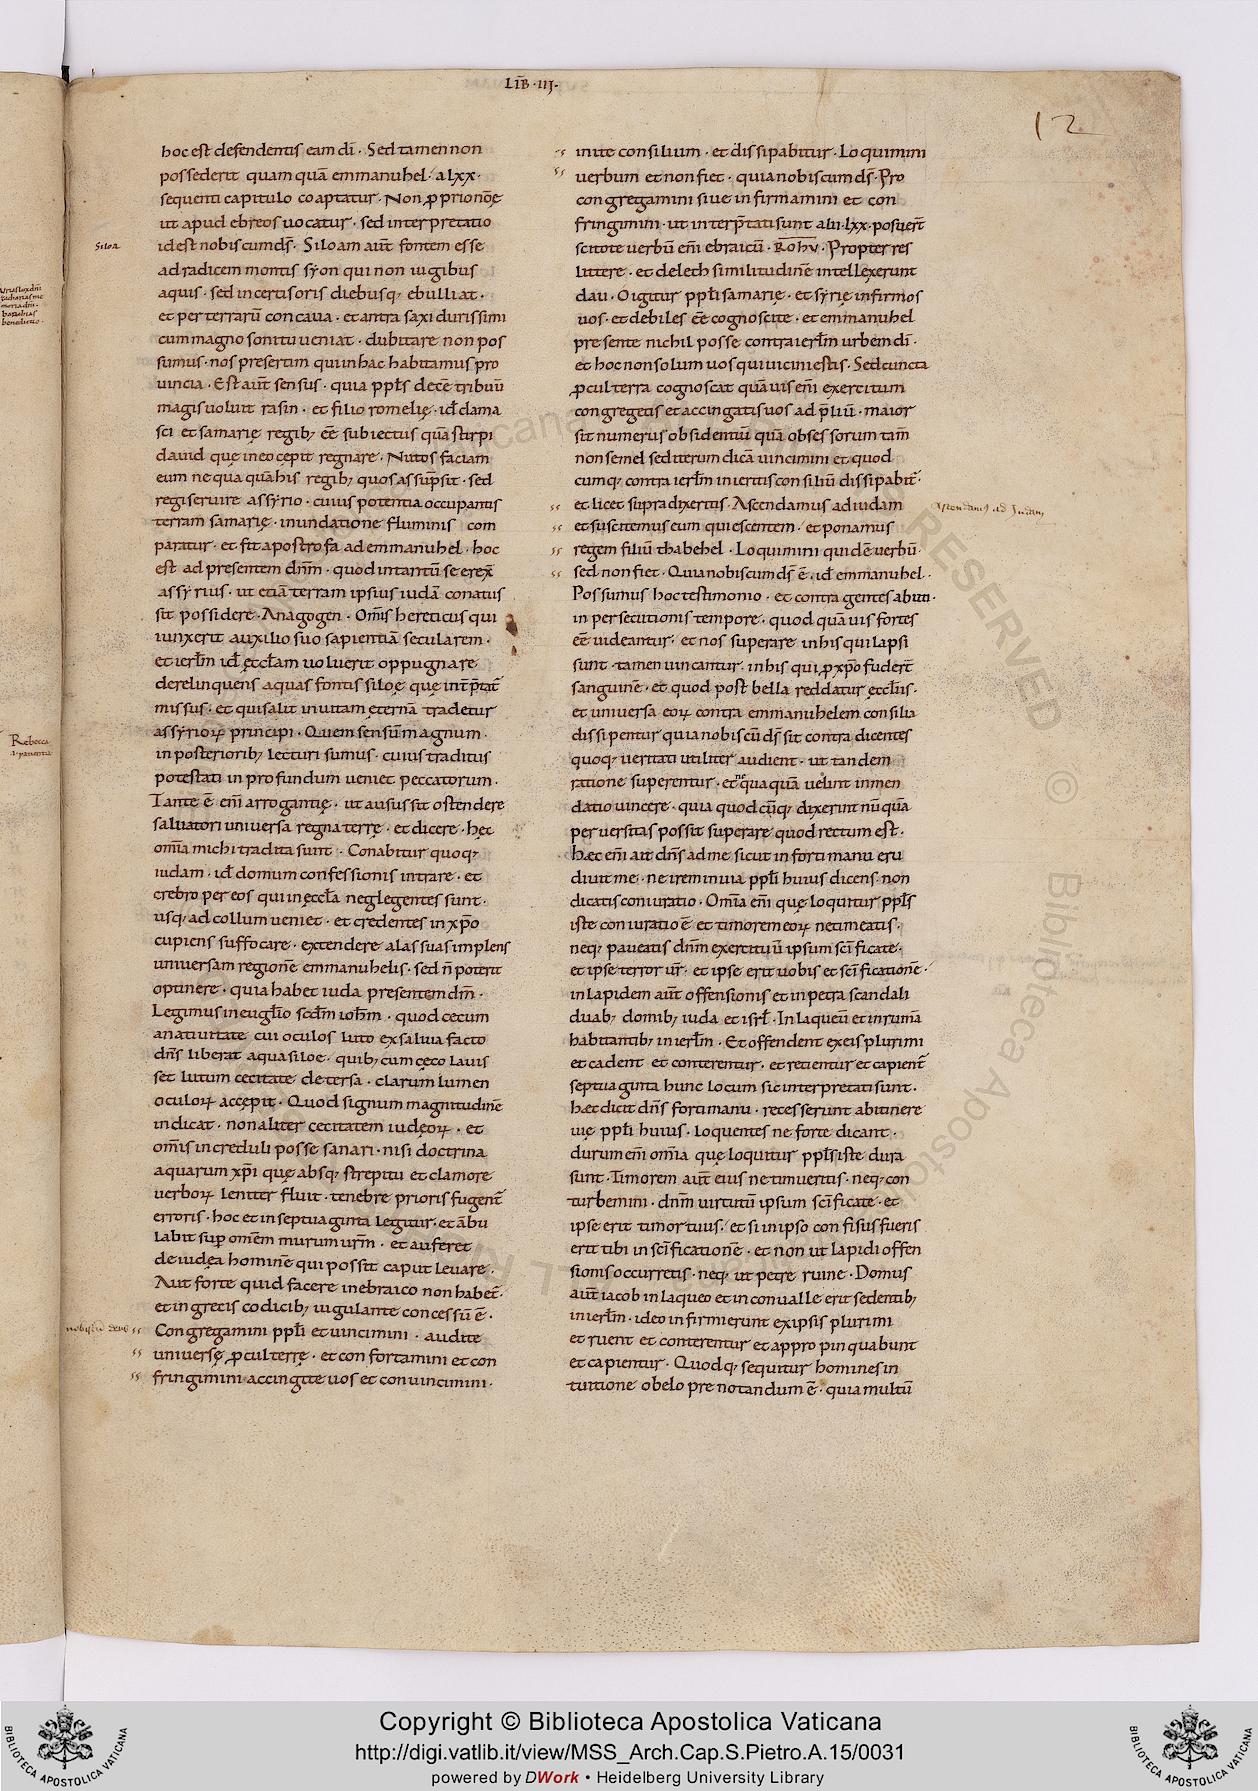 LIB̄ · III ·
12
hoc est defendentis eam dī · Sed tamen non
possederit quam quā emmanuhel · a lxx ·
sequenti capitulo coaptatur · Non ꝓprio noīe
ut apud ebreos uocatur · sed interpretatio
id est nobiscum dꝰ · Siloam aut̄ fontem esse
ad radicem montis syon qui non iugibus
aquis · sed incertis oris diebusq; ebulliat ·
et per terrarū concaua · et antra saxi durissimi
cum magno sonitu ueniat · dubitare non pos
sumus · nos presertim qui in hac habitamus pro
uincia · Est aut̄ sensus · quia ppl̄s decē tribuū
magis uoluit rasin · et filio romelię · id ̄ dama
sci et samarię regib; eē subiectus quā stirpi
dauid quę in eo cepit regnare · Nutos faciam
eum nequaquā his regib; quos assūpsit · sed
regi seruire assyrio · cuius potentia occupantis
terram samarię · inundatione fluminis com
paratur · et fit apostrofa ad emmanuhel · hoc
est ad presentem dnm̄ · quod in tantū se erex̄
assyrius · ut etiā terram ipsius iudā conatus
sit possidere · Anagogen · Om̄is hereticus qui
iunxerit auxilio suo sapientiā secularem ·
et ierl̄m id ̄ ęccl̄am uoluerit oppugnare
derelinquens aquas fontis siloę quę int̄p̄tat̄
missus · et qui salit in uitam ęternā tradetur
assyrioꝝ principi · Quem sensū magnum ·
in posteriorib; lecturi sumus · cuius traditus
potestati in profundum ueniet peccatorum ·
Tante ē em̄ arrogantię · ut ausus sit ostendere
saluatori uniuersa regna terrę · et dicere · hęc
om̄ia michi tradita sunt · Conabitur quoq;
iudam · id ̄ domum confessionis intrare · et
crebro per eos qui in ęccl̄a neglegentes sunt ·
usq; ad collum ueniet · et credentes in xp̄o
cupiens suffocare · extendere alas suas implens
uniuersam regionē emmanuhelis · sed n̄ poterit
optinere · quia habet iuda presentem dm̄ ·
Legimus in eugl̄io scd̄m ioh̄m · quod cecum
a natiuitate cui oculos luto ex saliua facto
dn̄s liberat aqua siloe · quib; cum cęco lauis
set lutum cecitate detersa · clarum lumen
oculoꝝ accępit · Quod signum magnitudinē
indicat · non aliter cecitatem iudęoꝝ · et
om̄is increduli posse sanari · nisi doctrina
aquarum xp̄i quę absq; strepitu et clamore
uerboꝝ leniter fluit · tenebre prioris fugent̄
erroris · hoc et in septuaginta legitur · et ābu
labit sup̄ omēm murum ur̄m · et auferet
de iudęa hominē qui possit caput leuare ·
Aut forte quid facere in ebraico non habet̄ ·
et in grecis codicib; uigulante concessū ē ·
Congregamini ppl̄i et uincimini · audite
uniuersę ꝓcul terrę · et confortamini et con
fringimini accingite uos et conuincimini ·
Siloa
nobiscū deus
inite consilium · et dissipabitur · Loquimini
uerbum et non fiet · quia nobiscum dꝰ · Pro
congregamini siue infirmamini et con
fringimini · ut interp̄tati sunt alii · lxx · posuer̄t
scitote uerbū em̄ ebraicū · ROHV · Propter res
littere · et delech similitudinē intellexerunt
dau · O igitur ppl̄i samarię · et syrię infirmos
uos · et debiles eē cognoscite · et emmanuhel
presente nichil posse contra ierl̄m urbem dī ·
et hoc non solum uos qui uicini estis · Sed cuncta
ꝓcul terra cognoscat quāuis em̄ exercitum
congregetis et accingatis uos ad p̄liū · maior
sit numerus obsidentiū quā obsessorum tam̄
non semel sed iterum dicā uincimini et quod
cumq; contra ierl̄m inieritis consiliū dissipabit̄ ·
et licet supra dixeritis · Ascendamus ad iudam
et suscitemus eum quiescentem · et ponamus
regem filiū thabehel · Loquimini quidē uerbū ·
sed non fiet · Quia nobiscum dꝰ ē · id ̄ emmanuhel ·
Possumus hoc testimonio · et contra gentes abuti ·
in persecutionis tempore · quod quāuis fortes
eē uideantur · et nos superare in his qui lapsi
sunt · tamen uincantur · in his qui ꝓ xp̄o fuder̄t
sanguinē · et quod post bella reddatur ęccl̄iis ·
et uniuersa eoꝝ contra emmanuhelem consilia
dissipentur quia nobiscū dꝰ sit contra dicentes
quoq; ueritati utiliter audient · ut tandem
ratione superentur · et ne quaquā uelint in men
datio uincere · quia quod cūq; dixerint nūquā
peruersitas possit superare quod rectum est ·
Hæc em̄ ait dn̄s ad me sicut in forti manu eru
diuit me · ne irem in uia ppl̄i huius dicens · non
dicatis coniuratio · Om̄ia em̄ quę loquitur ppl̄s
iste coniuratio ē et timorem eoꝝ ne timeatis ·
neq; paueatis dnm̄ exercituū ipsum scīficate ·
et ipse terror ur̄ · et ipse erit uobis et scīficationē ·
in lapidem aut̄ offensionis et in petra scandali
duab; domib; iuda et isrl̄ · In laqueū et in ruinā
habitantib; in ierl̄m · Et offendent ex eis plurimi
et cadent et conterentur · et retientur et capient̄
septuaginta hunc locum sic interpretati sunt ·
hæc dicit dn̄s forti manu · recesserunt ab itinere
uię ppl̄i huius · loquentes ne forte dicant ·
durum em̄ om̄ia quę loquitur ppl̄s iste dura
sunt · Timorem aut̄ eius ne timueritis · neq; con
turbemini · dnm̄ uirtutū ipsum scīficate · et
ipse erit timor tuus · et si in ipso confisus fueris
erit tibi in scīficationē · et non ut lapidi offen
sionis occurretis · neq; ut petre ruine · Domus
aut̄ iacob in laqueo et in conualle erit sedentib;
in ierl̄m · ideo infirmierunt ex ipsis plurimi
et ruent et conterentur et appropinquabunt
et capientur · Quodq; sequitur homines in
tuitione obelo prenotandum ē · quia multū
Ascendamus ad Iudam
Rebecca
i · patientia
RESERVED © Biblioteca Apostolica Vaticana
Copyright © Biblioteca Apostolica Vaticana
http://digi.vatlib.it/view/MSS_Arch.Cap.S.Pietro.A.15/0031
powered by DWork • Heidelberg University Library
BIBLIOTECA APOSTOLICA VATICANA
BIBLIOTECA APOSTOLICA VATICANA